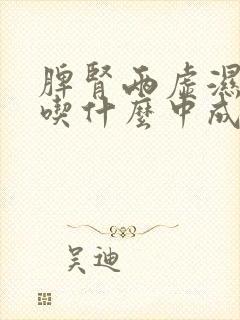 脾腎兩虛濕
喫什麼中成
吴迪